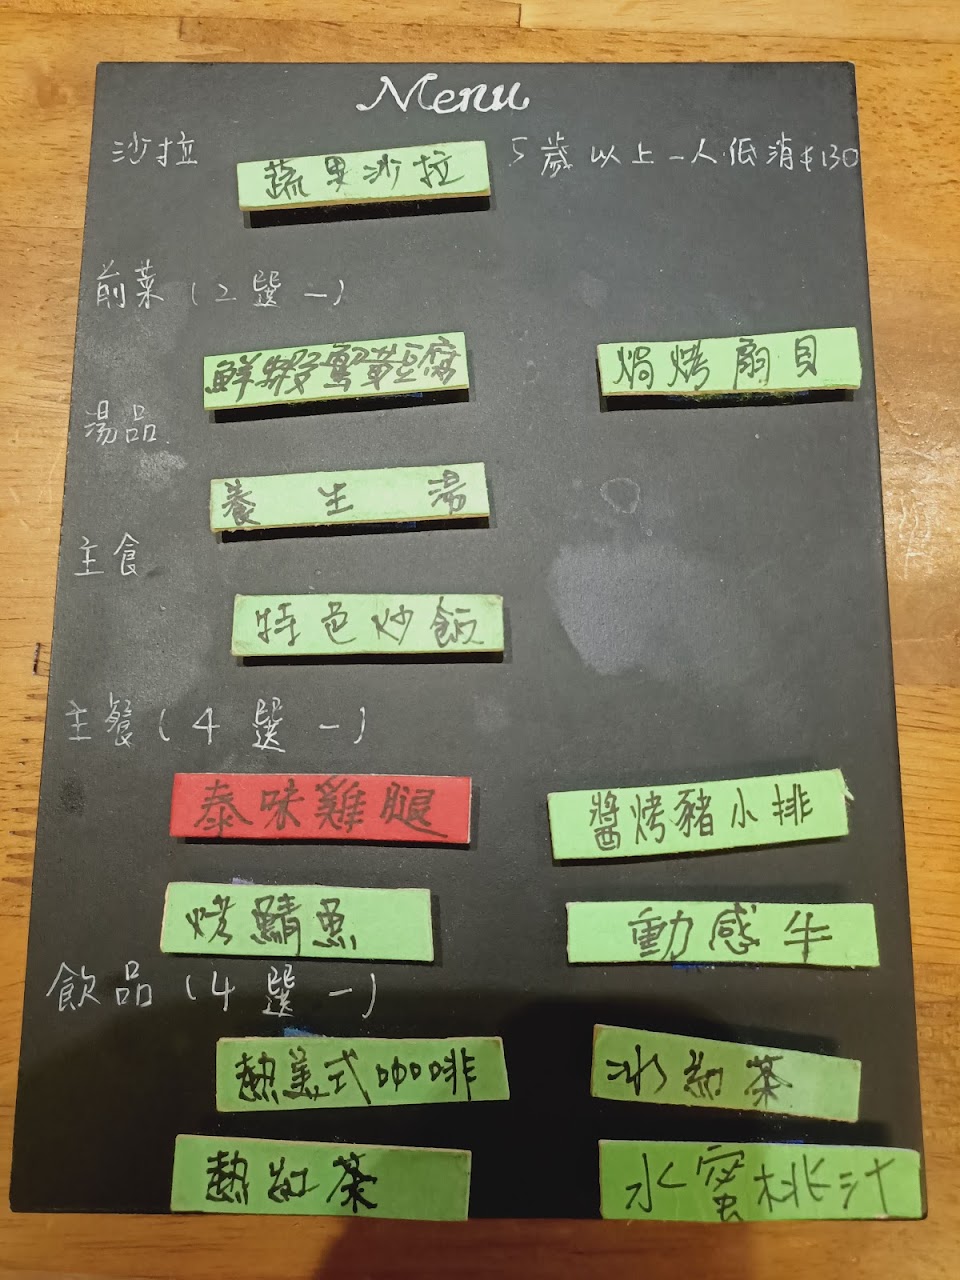 Menu
沙拉
蔬果沙拉
5歲以上一人低消$130
前菜(2選一)
豆腐
焗烤扇貝
湯品
養生湯
主食
特色炒飯
主餐(4選一)
泰味雞腿
醬烤豬小排
烤鯖魚
動感牛
飲品(4選一)
熱美式咖啡
冰紅茶
熱紅茶
水蜜桃汁